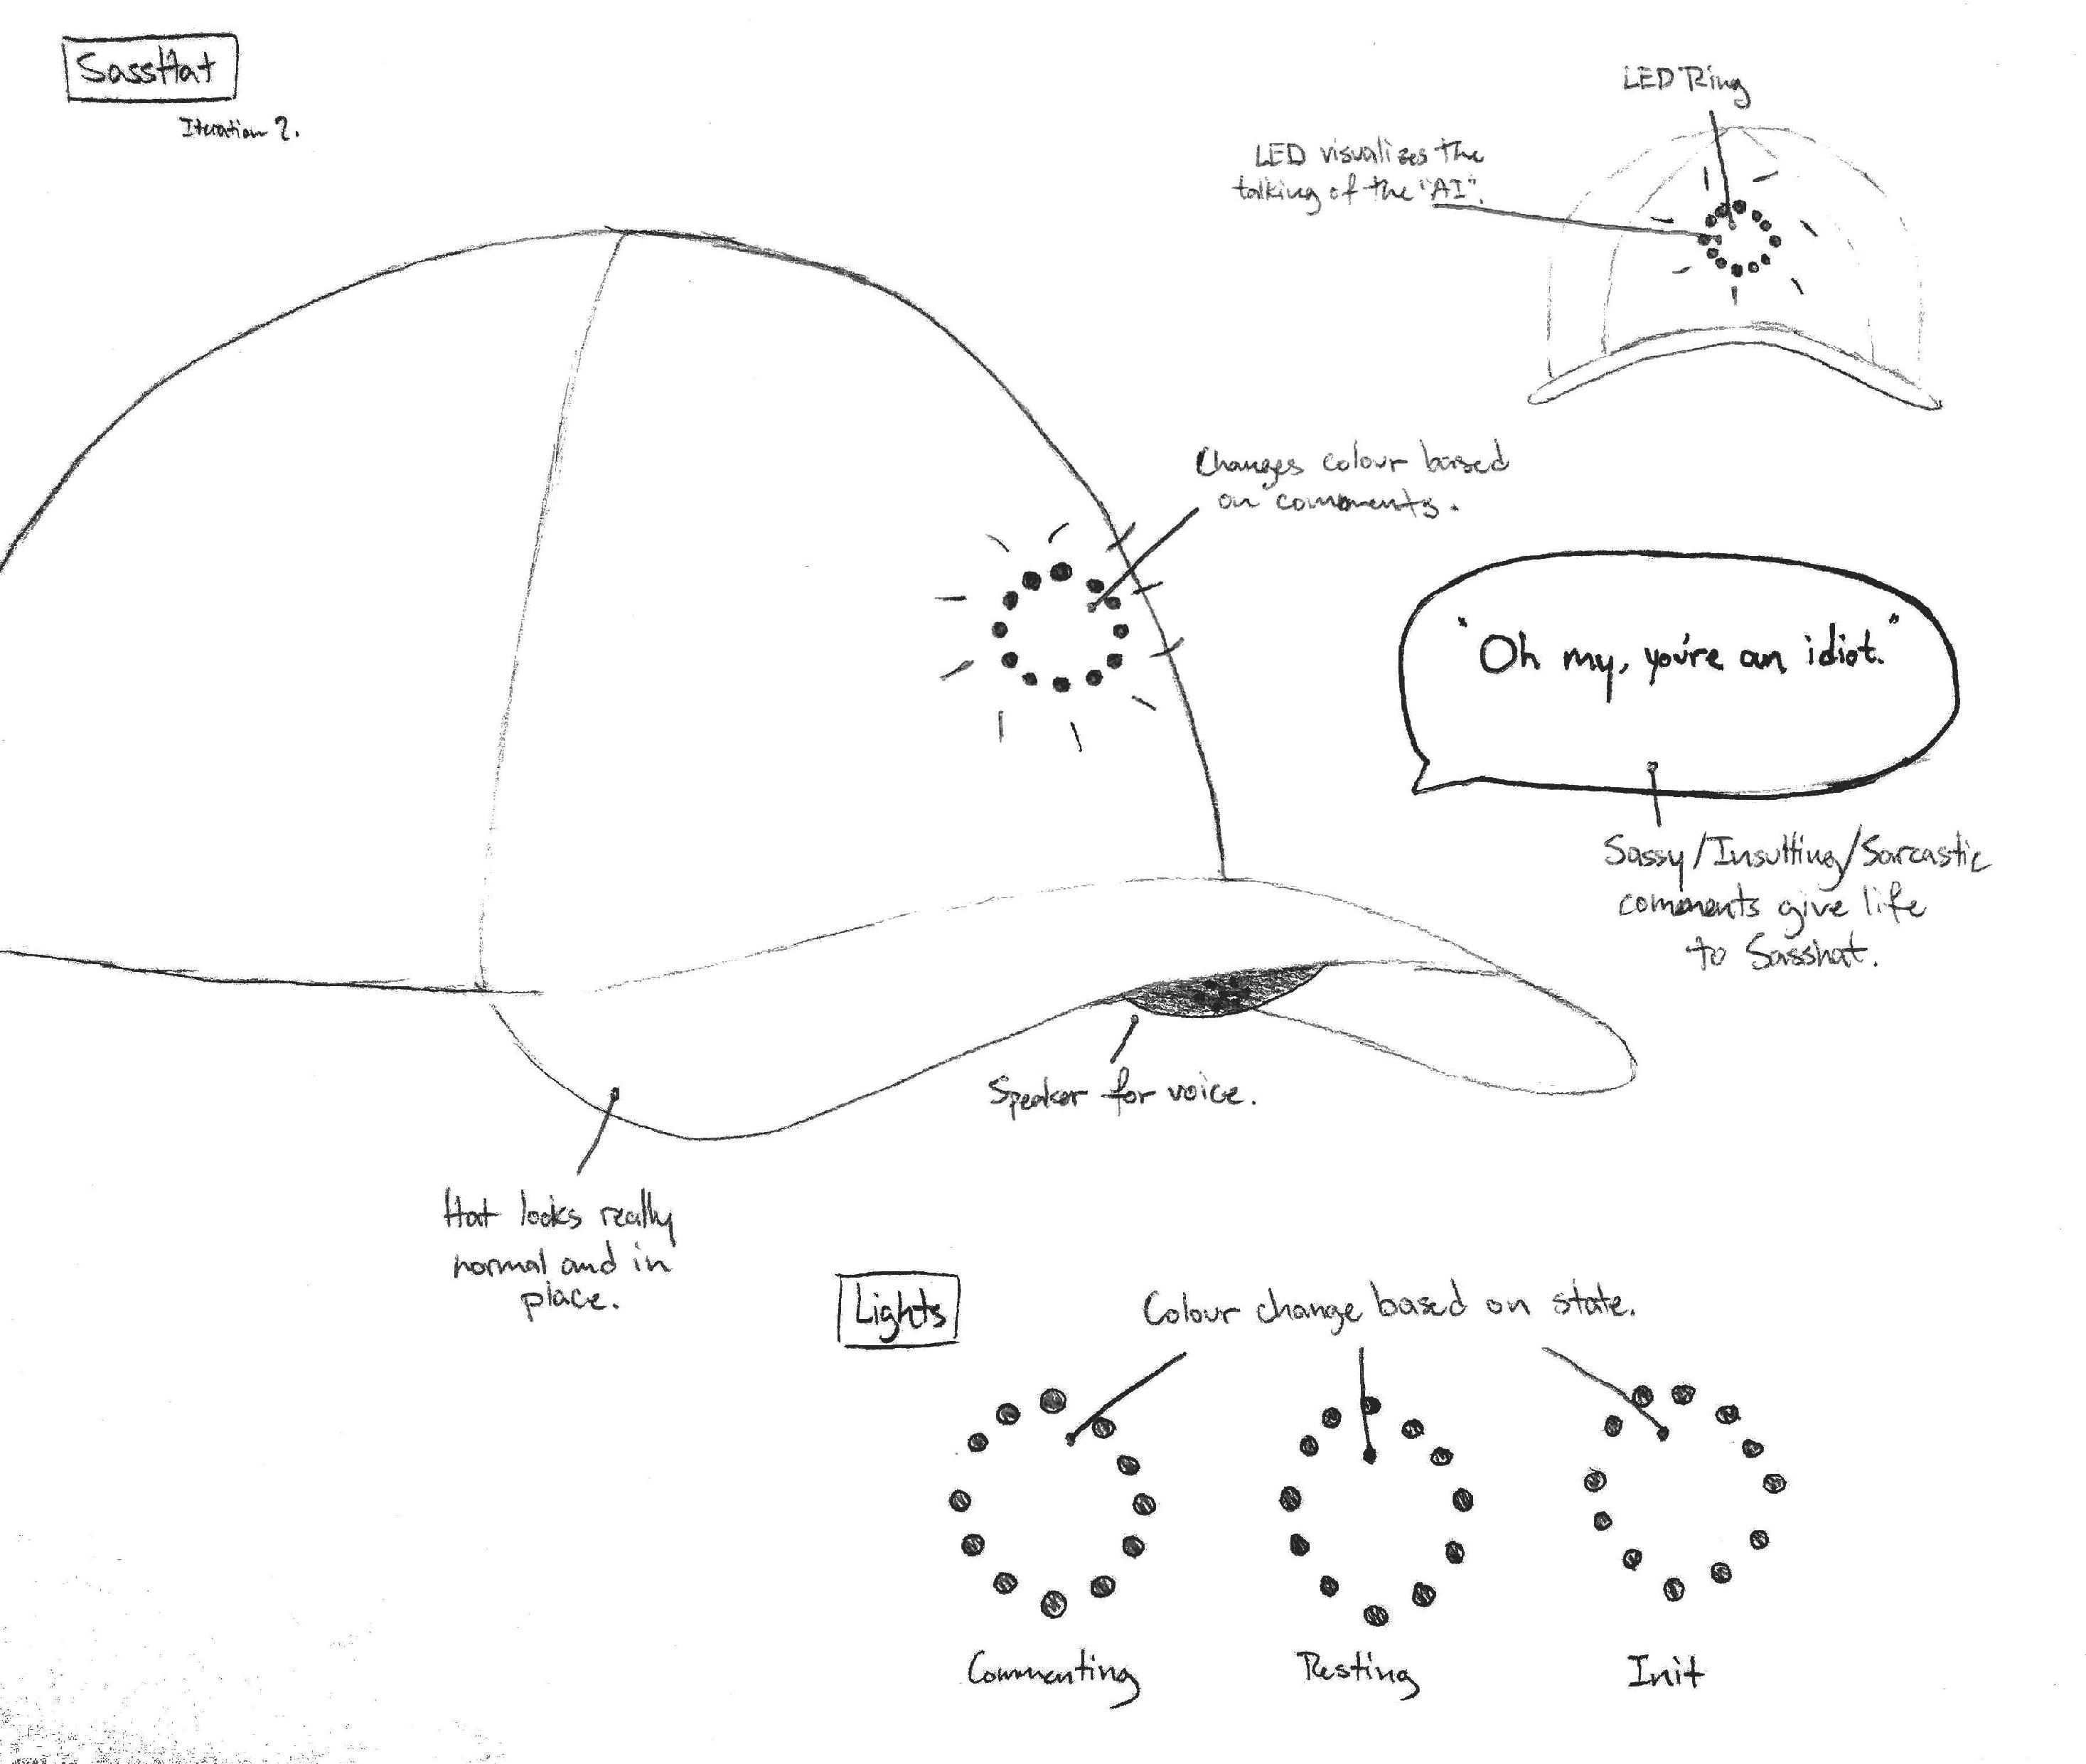 SassHat
Iteration 2.
LED Ring
LED visualizes the
talking of the "AI".
Changes colour based
on comments.
"Oh my, you're an idiot."
Sassy/Insulting/Sarcastic
comments give life
to Sasshat.
Speaker for voice.
Hat looks really
normal and in
place.
Lights
Colour change based on state.
Commenting
Resting
Init